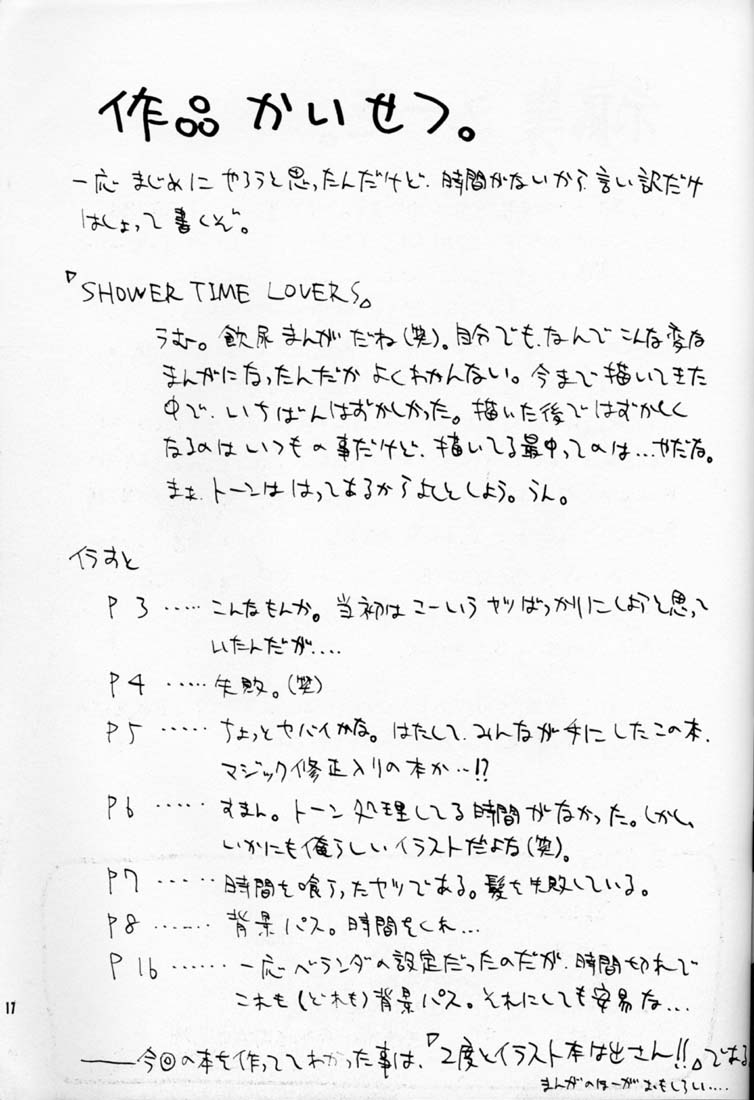 作品かいせつ。
一応まじめにやろうと思ったんだけど、時間がないから言い訳だけ
はしょって書くぞ。
『SHOWER TIME LOVERS』
うむ。飲尿まんがだね(笑)。自分でも、なんでこんな変な
まんがになったんだかよくわかんない。今まで描いてきた
中で、いちばんはずかしかった。描いた後ではずかしく
なるのはいつもの事だけど、描いてる最中ってのは…やだな。
まぁ、トーンははってあるからよしとしよう。うん。
イラすと
P3……こんなもんか。当初はこーいうヤツばっかりにしようと思って
いたんだが....
P4……失敗。(笑)
P5……ちょっとヤバイかな。はたして、みんなが手にしたこの本、
マジック修正入りの本か…!?
P6……すまん。トーン処理してる時間がなかった。しかし、
いかにも俺らしいイラストだよな(笑)。
P7……時間を喰らったヤツである。髪を失敗している。
P8……背景パス。時間をくれ…
P16……一応ベランダの設定だったのだが、時間切れで
これも(どれも)背景パス。それにしても安易な....
――今回の本を作っててわかった事は、『2度とイラスト本は出さん!!』である
まんがのほーがおもしろい....
17